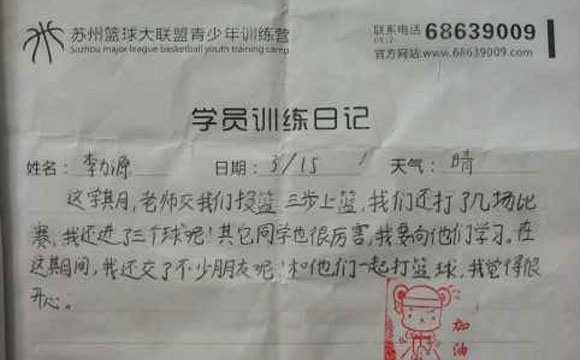 苏州篮球大联盟青少年训练营
Suzhou major league basketball youth training camp
联系电话 68639009
官方网站:www.68639009.com
学员训练日记
姓名: 李力源 日期: 3/15 天气: 晴
这学期,老师交我们投篮 三步上篮,我们还打了几场比
赛,我还进了三个球呢!其它同学也很厉害,我要向他们学习。在
这期间,我还交了不少朋友呢!和他们一起打篮球,我觉得很
开心。
加
油